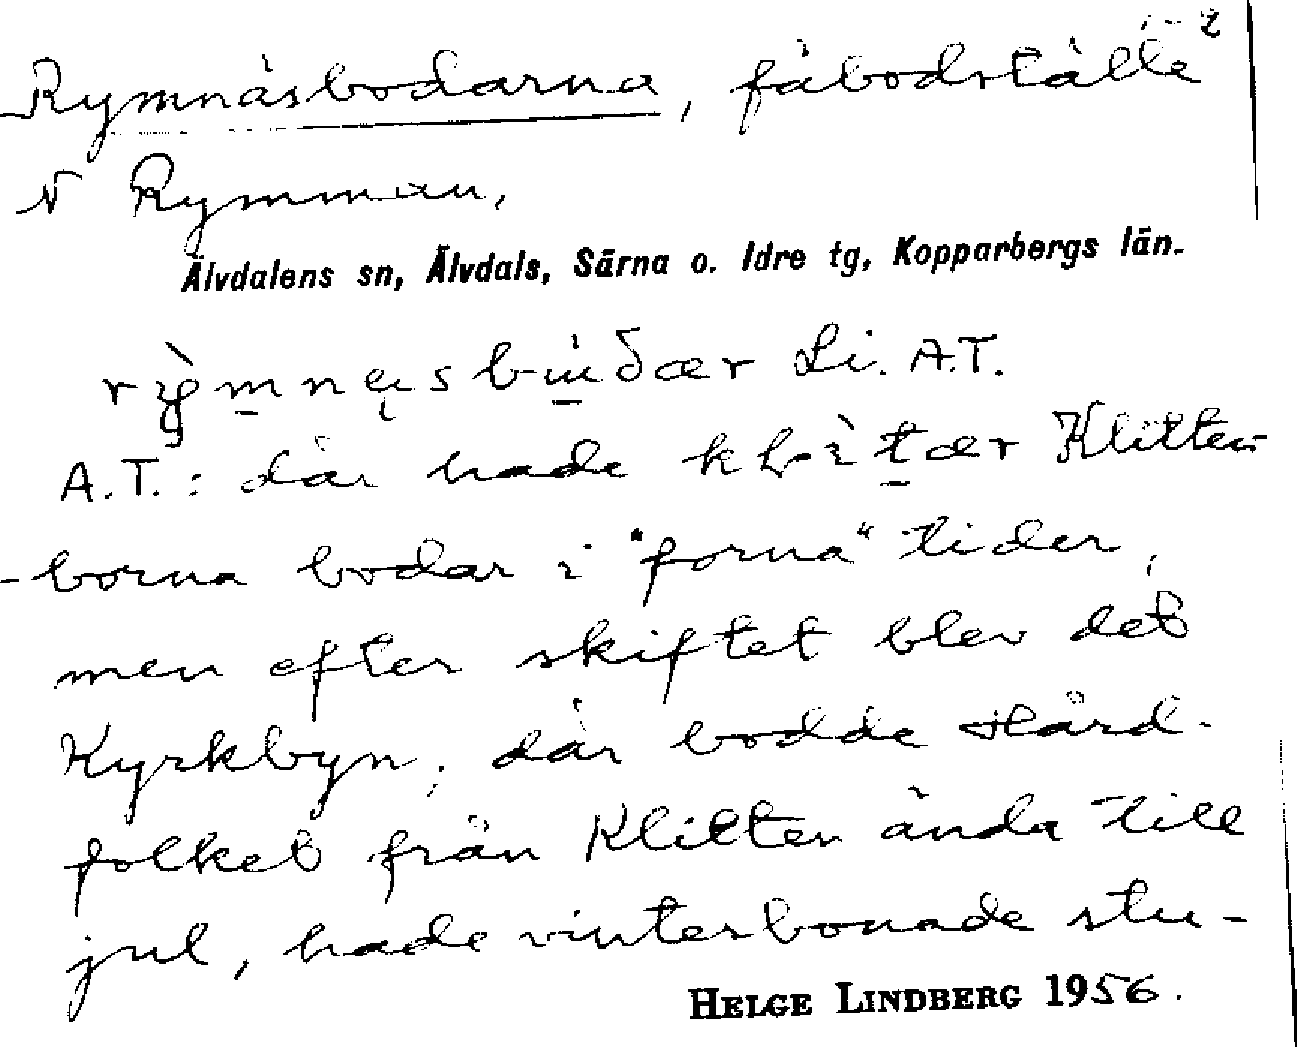 Rymnäsbodarna, fäbodställe
N Rymman,
Älvdalens sn, Älvdals, Särna o. Idre tg, Kopparbergs län.
Li. A.T.
A.T.: där hade Klitten-
borna bodar i "forna" tider,
men efter skiftet blev det
Kyrkbyn; där bodde Hård-
folket från Klitten ända till
jul, hade vinterbonade stu-
HELGE LINDBERG 1956.